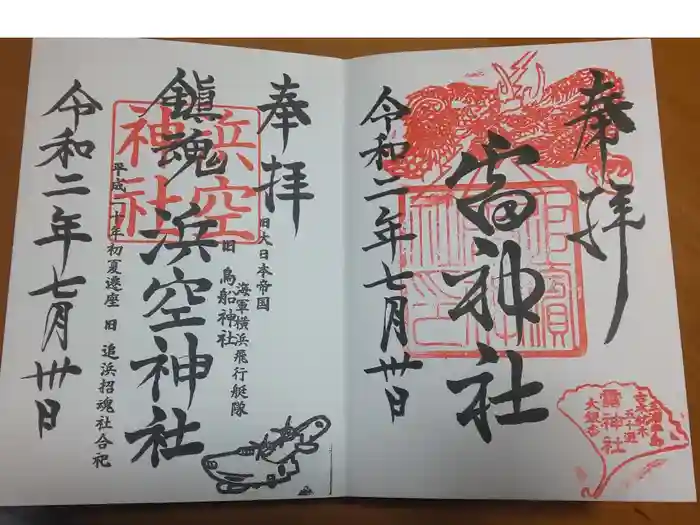 奉拝
雷神社
令和二年七月卅日
雷神社
大銀杏
奉拝
旧大日本帝国
海軍横浜飛行艇隊
旧 鳥船神社
鎮魂 浜空神社
浜空
神社
平成二十年初夏遷座 旧 追浜招魂社合祀
令和二年七月卅日